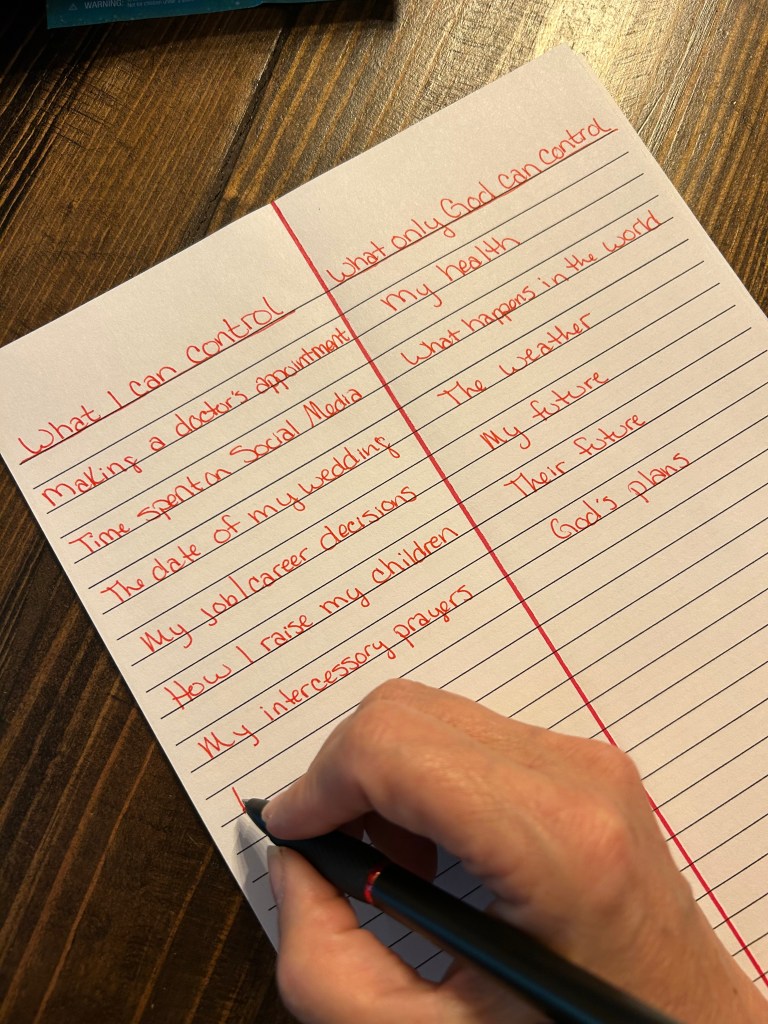 WARNING:
What I can control
Making a doctor's appointment
Time spent on Social Media
The date of my wedding
My job/career decisions
How I raise my children
My intercessory prayers
What only God can control
My health
What happens in the world
The weather
My future
Their future
God's plans